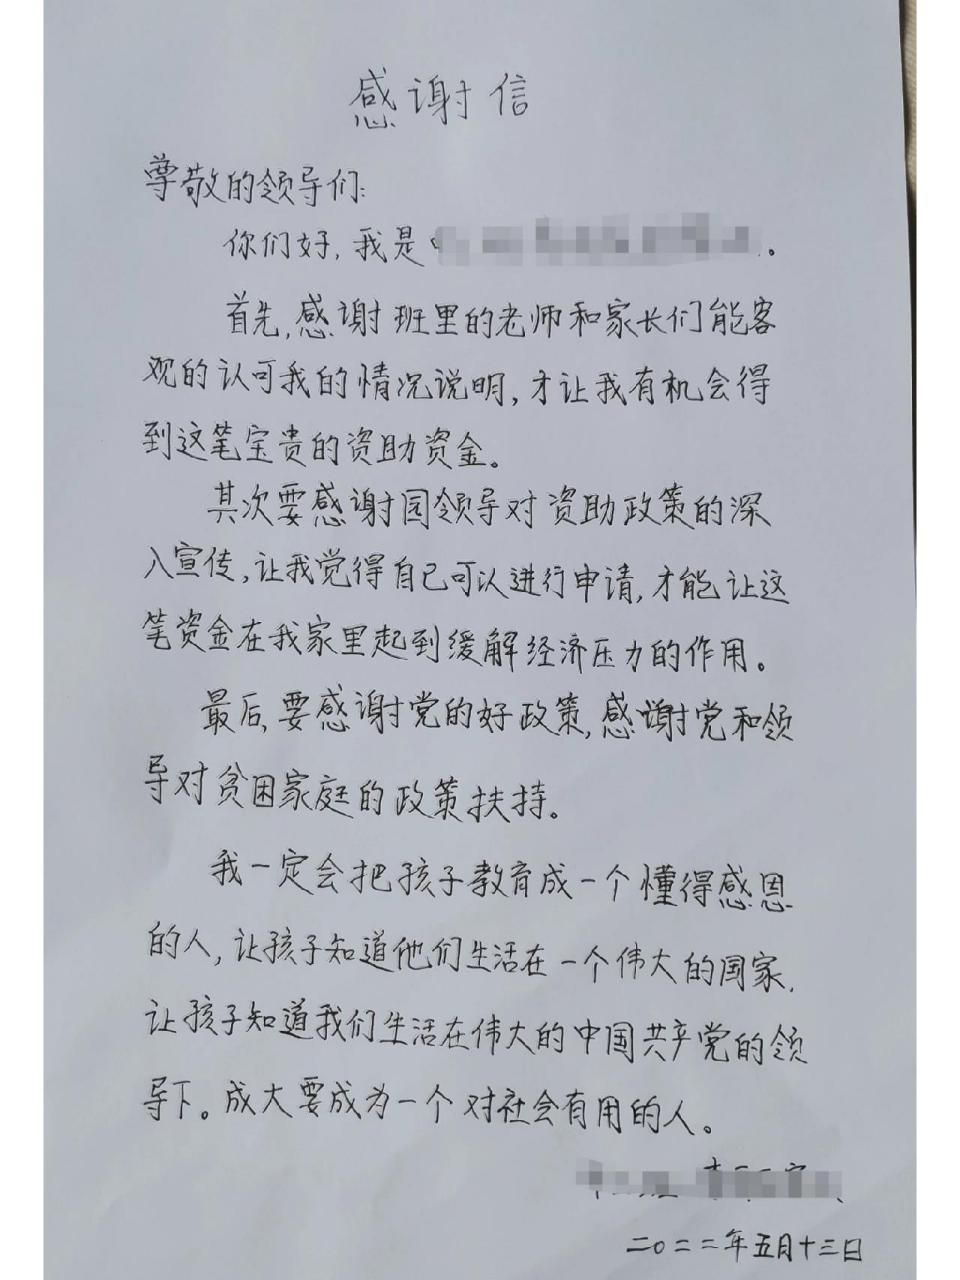 感谢信
尊敬的领导们:
你们好,我是
首先,感谢班里的老师和家长们能客
观的认可我的情况说明,才让我有机会得
到这笔宝贵的资助资金。
其次要感谢园领导对资助政策的深
入宣传,让我觉得自己可以进行申请,才能让这
笔资金在我家里起到缓解经济压力的作用。
最后,要感谢党的好政策,感谢党和领
导对贫困家庭的政策扶持。
我一定会把孩子教育成一个懂得感恩
的人,让孩子知道他们生活在一个伟大的国家,
让孩子知道我们生活在伟大的中国共产党的领
导下。成大要成为一个对社会有用的人。
二〇二二年五月十三日